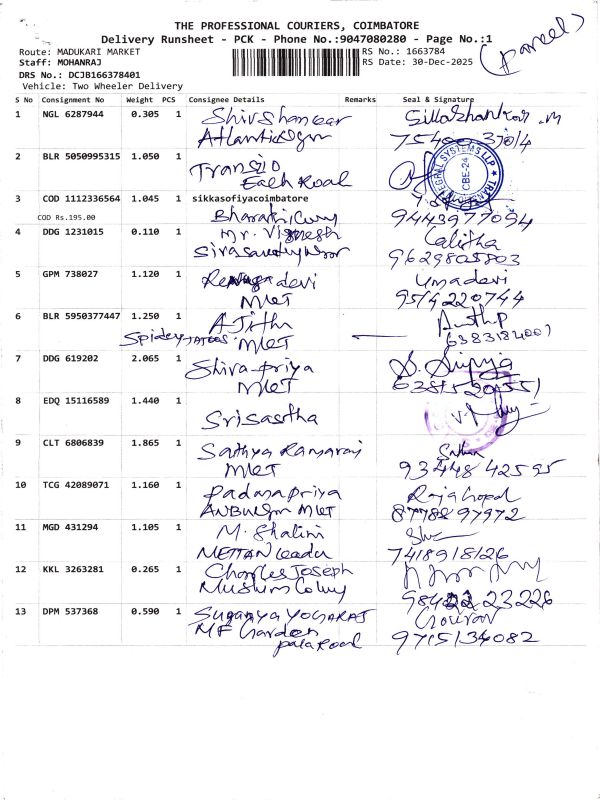 THE PROFESSIONAL COURIERS, COIMBATORE
Delivery Runsheet - PCK - Phone No.:9047080280 - Page No.:1
(Parcel)
Route: MADUKARI MARKET
RS No.: 1663784
Staff: MOHANRAJ
RS Date: 30-Dec-2025
DRS No.: DCJB166378401
Vehicle: Two Wheeler Delivery
S No Consignment No Weight PCS Consignee Details Remarks Seal & Signature
1 NGL 6287944 0.305 1 Shivshankar
Atlantic
2 BLR 5050995315 1.050 1 Transid
Each Road
INTEGRAL SYSTEMS LLP
CBE-24
3 COD 1112336564 1.045 1 sikkasofiyacoimbatore
COD Rs.195.00 Bharathi 9443977094
4 DDG 1231015 0.110 1 Mr. Vignesh Lalitha
9629805803
5 GPM 738027 1.120 1 Renugadevi Umadevi
MKT 9514220744
6 BLR 5950377447 1.250 1 Ajith
MKT 6383184001
7 DDG 619202 2.065 1 Shivapriya
MKT
8 EDQ 15116589 1.440 1 Srisastha
9 CLT 6806839 1.865 1 Sathya Ramaraj
MKT 93448 42595
10 TCG 42089071 1.160 1 Padmapriya Rajagopal
MKT 87788 97972
11 MGD 431294 1.105 1 M. Shalini
7418918126
12 KKL 3263281 0.265 1 Charles Joseph
Muslim Colony
13 DPM 537368 0.590 1 Suganya YOGARAJ
MF Garden 9715134082
Road